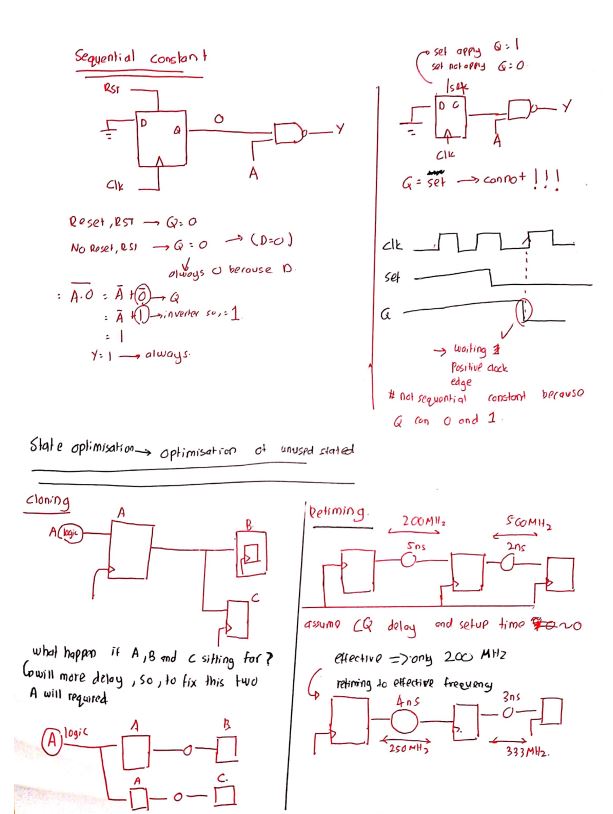 Sequential constant
RST
D
Q
0
Y
A
Clk
Reset, RST → Q = 0
No Reset, RST → Q = 0 → (D=0)
always 0 because D.
: A.0 = Ā + 0̄ → Q
= Ā + 1 → inverter so, = 1.
= 1
Y = 1 → always.
set apply Q = 1
set not apply Q = 0
D
Y
A
Clk
Q = set → cannot !!!
clk
set
Q
→ waiting
Positive clock
edge
# not sequential constant because
Q can 0 and 1.
State optimisation → optimisation of unused stated
Cloning
A
A logic
B
C
what happen if A, B and C sitting far?
will more delay, so, to fix this two
A will required
A logic
A
B
A
C.
Retiming.
200MHz
500MHz
5ns
2ns
assume CQ delay and setup time ~0
effective => only 200 MHz
retiming to effective frequency
4ns
3ns
250MHz
333MHz.